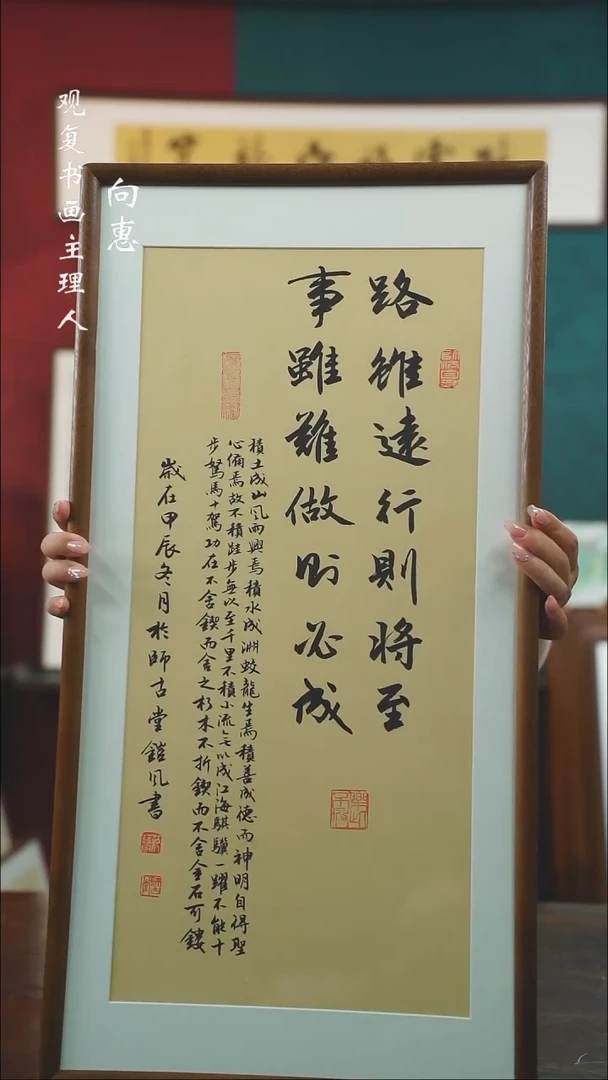 观复书画主理人
向惠
路雖遠行則將至
事雖難做則必成
積土成山風雨興焉積水成淵蛟龍生焉積善成德而神明自得聖
心備焉故不積跬步無以至千里不積小流無以成江海騏驥一躍不能十
步駑馬十駕功在不舍鍥而舍之朽木不折鍥而不舍金石可鏤
歲在甲辰冬月於師古堂鎧風書